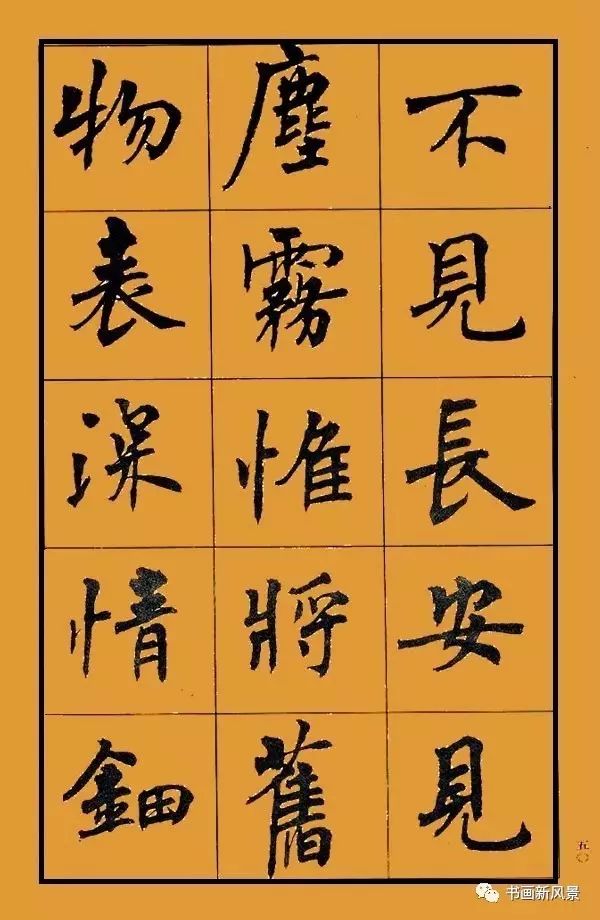 不見長安見
塵霧惟將舊
物表深情鈿
五〇
书画新风景